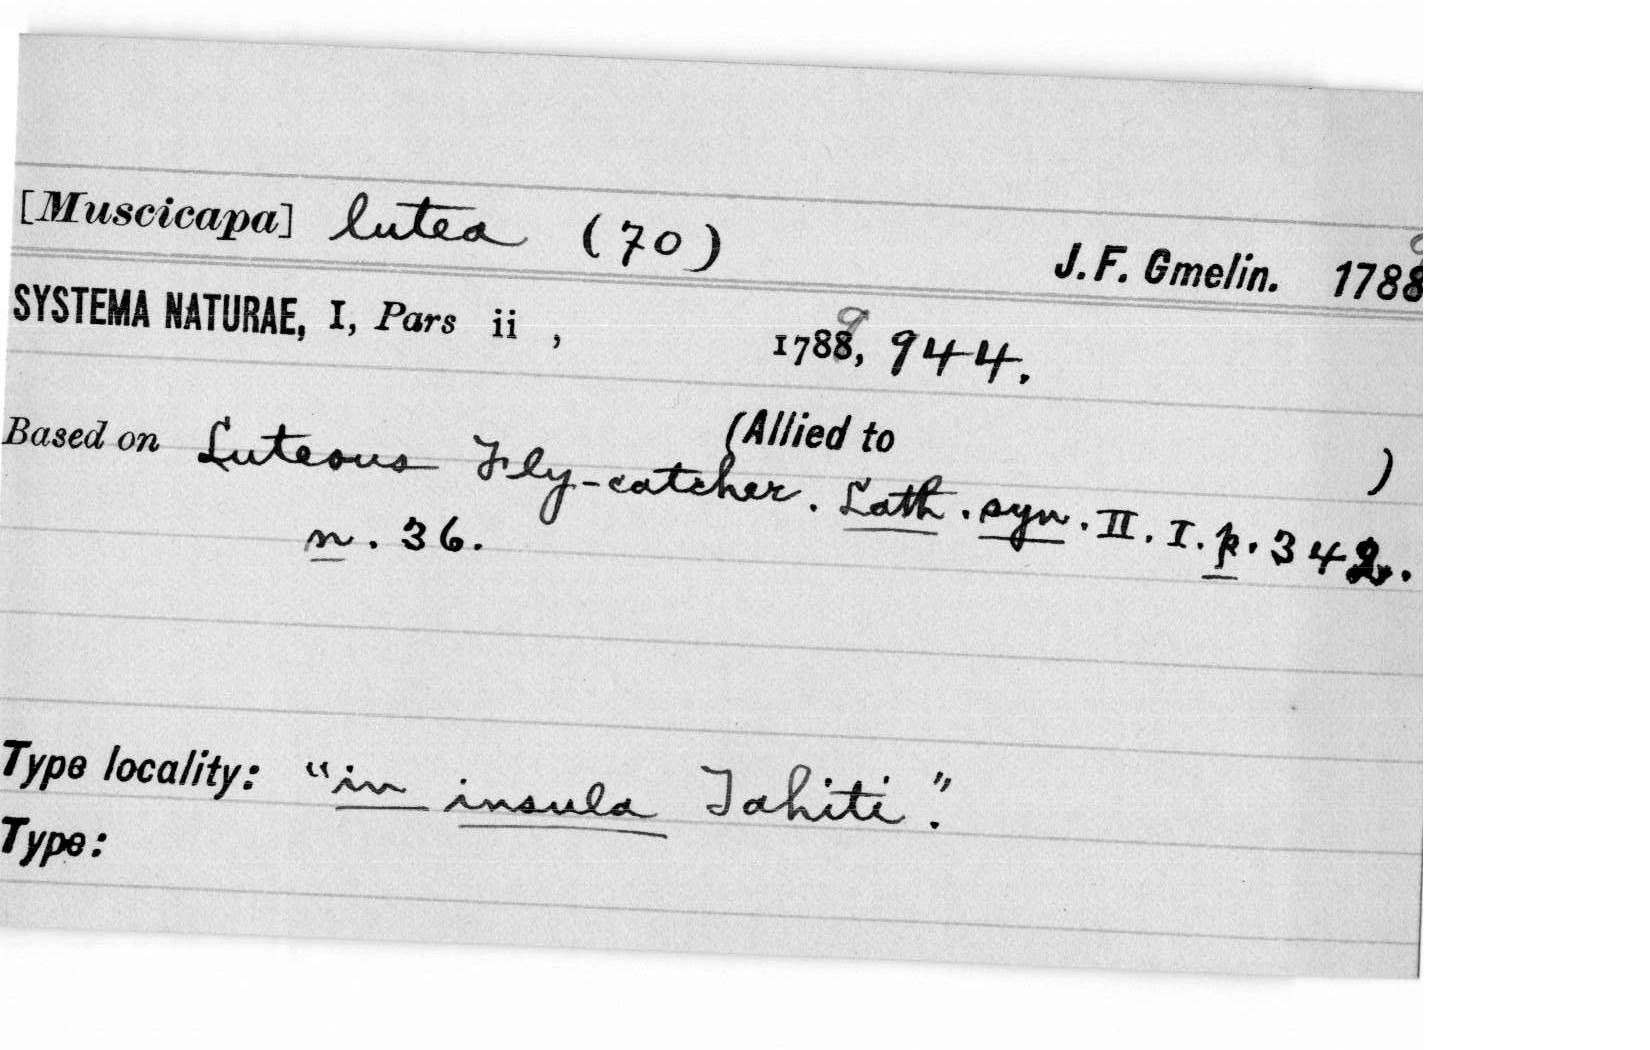 [Muscicapa] lutea (70)
J. F. Gmelin. 1788 9
SYSTEMA NATURAE, I, Pars ii , 1788, 9 944.
(Allied to )
Based on Luteous Fly-catcher. Lath. syn. II. I. p. 342.
n. 36.
Type locality: "in insula Tahiti."
Type: